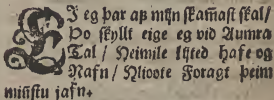 EJ eg þar aß mijn skamast skal/
Þo skyllt eige eg vid Aumra
Tal/ Heimile lijted hafe og
Nafn/ Nlioote Foragt þeim
miñstu jafn.